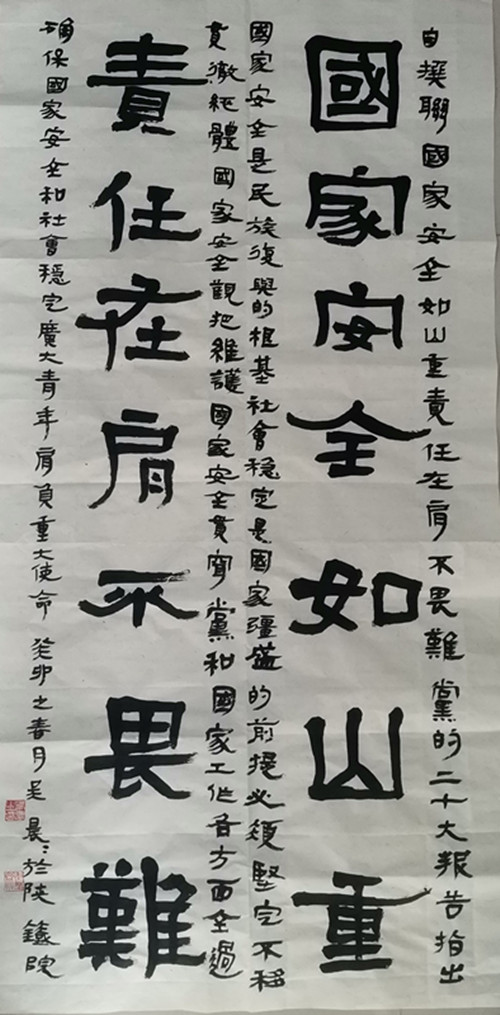 自撰聯國家安全如山重責任在肩不畏難黨的二十大報告指出
國家安全如山重
國家安全是民族復興的根基社會穩定是國家彊盛的前提必須堅定不移
貫徹總體國家安全觀把維護國家安全貫穿黨和國家工作各方面全過
責任在肩不畏難
確保國家安全和社會穩定廣大青年肩負重大使命癸卯之春月吴晨晨於陝鐵院